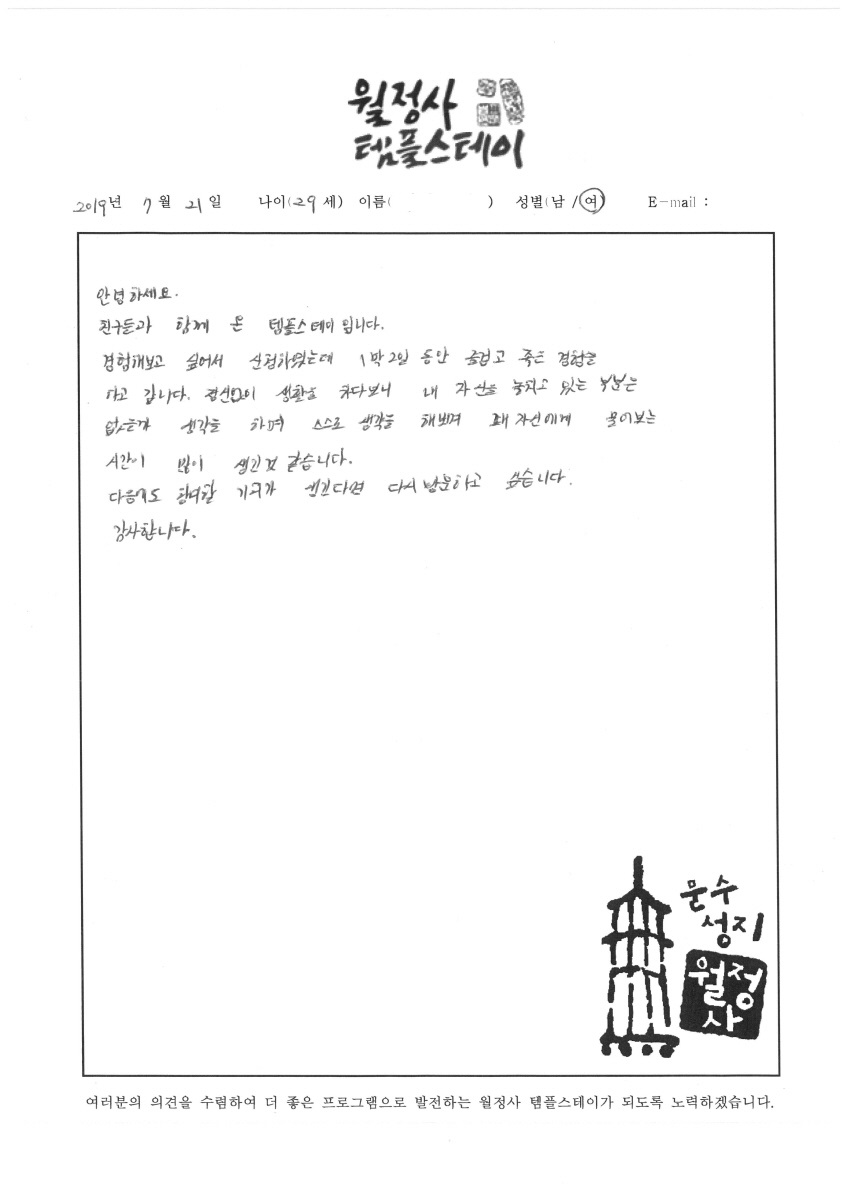 월정사
템플스테이
2019년 7월 21일 나이(29세) 이름( ) 성별(남/여) E-mail :
안녕하세요.
친구들과 함께 온 템플스테이 입니다.
경험해보고 싶어서 신청하였는데 1박2일 동안 즐겁고 좋은 경험을
하고 갑니다. 정신없이 생활을 하다보니 내 자신을 놓치고 있는 부분은
없는가 생각을 하며 스스로 생각을 해보며 내 자신에게 물어보는
시간이 많이 생긴것 같습니다.
다음에도 참여할 기회가 생긴다면 다시 방문하고 싶습니다.
감사합니다.
문수
성지
월정
사
여러분의 의견을 수렴하여 더 좋은 프로그램으로 발전하는 월정사 템플스테이가 되도록 노력하겠습니다.